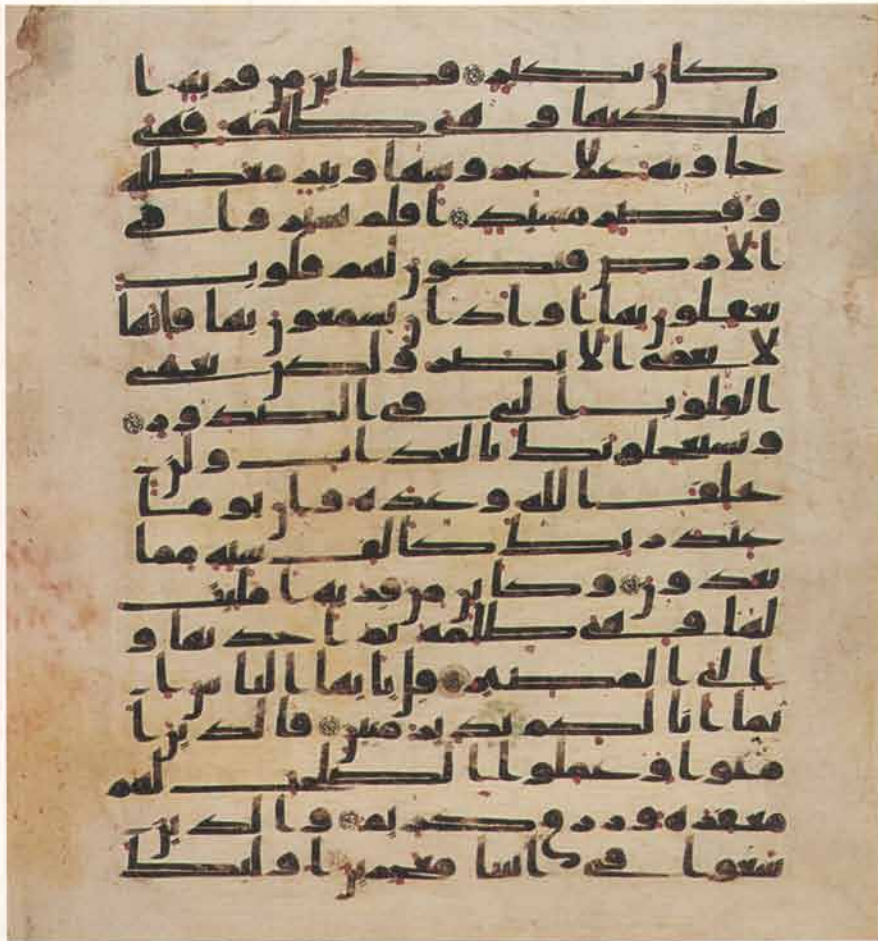 كان نكير فكاين من قرية ا
هلكنها و هي ظلمة فهي
خاوية علا عروشها وبير معطلة
وقصر مشيد افلم يسيروا في
الارض فتكون لهم قلوب
يعقلون بها او اذان يسمعون بها فانها
لا تعمى الابصر ولكن تعمى
القلوب التي في الصدور
ويستعجلونك بالعذاب ولن
يخلف الله وعده وان يوما
عند ربك كالف سنة مما
تعدون وكاين من قرية امليت
لها و هي ظلمة ثم اخذتها و
الي المصير قل يايها الناس ا
نما انا لكم نذير مبين فالذين ا
منوا وعملوا الصلحت لهم
مغفرة ورزق كريم والذين
سعوا في اياتنا معجزين اوليك